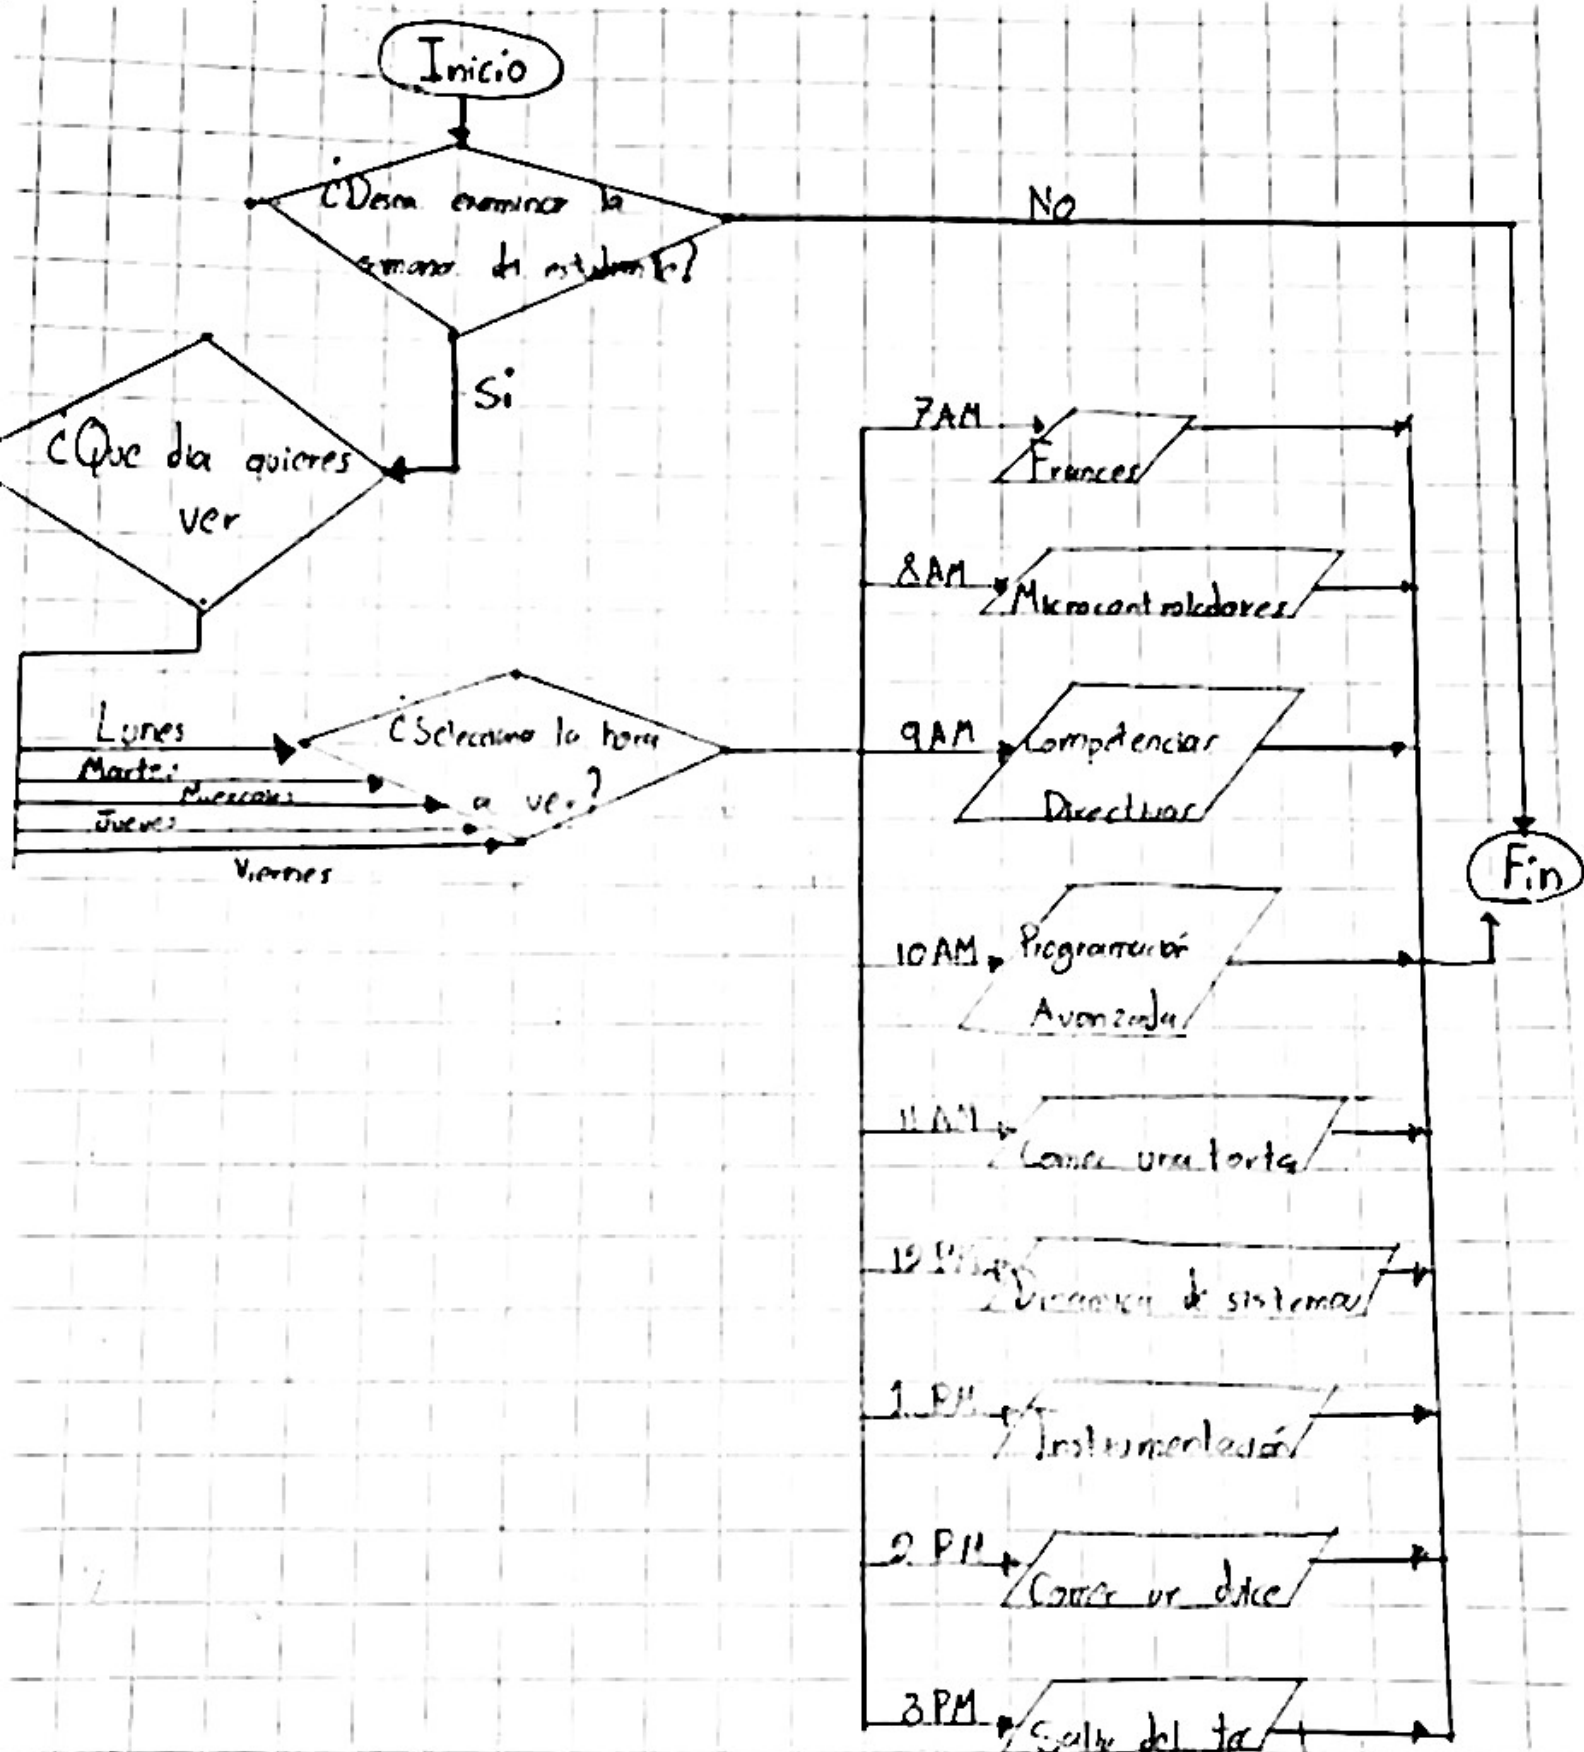 Inicio
¿Desea examinar la
semana del estudiante?
No
Si
¿Que dia quieres
ver
Lunes
Martes
Miercoles
Jueves
Viernes
¿Selecciona la hora
a ver?
7AM
Frances
8AM
Microcontroladores
9AM
Competencias
Directivas
10AM
Programación
Avanzada
11 AM
Comer una torta
12 PM
Dinamica de sistemas
1 PM
Instrumentación
2 PM
Comer un dulce
3PM
del
Fin